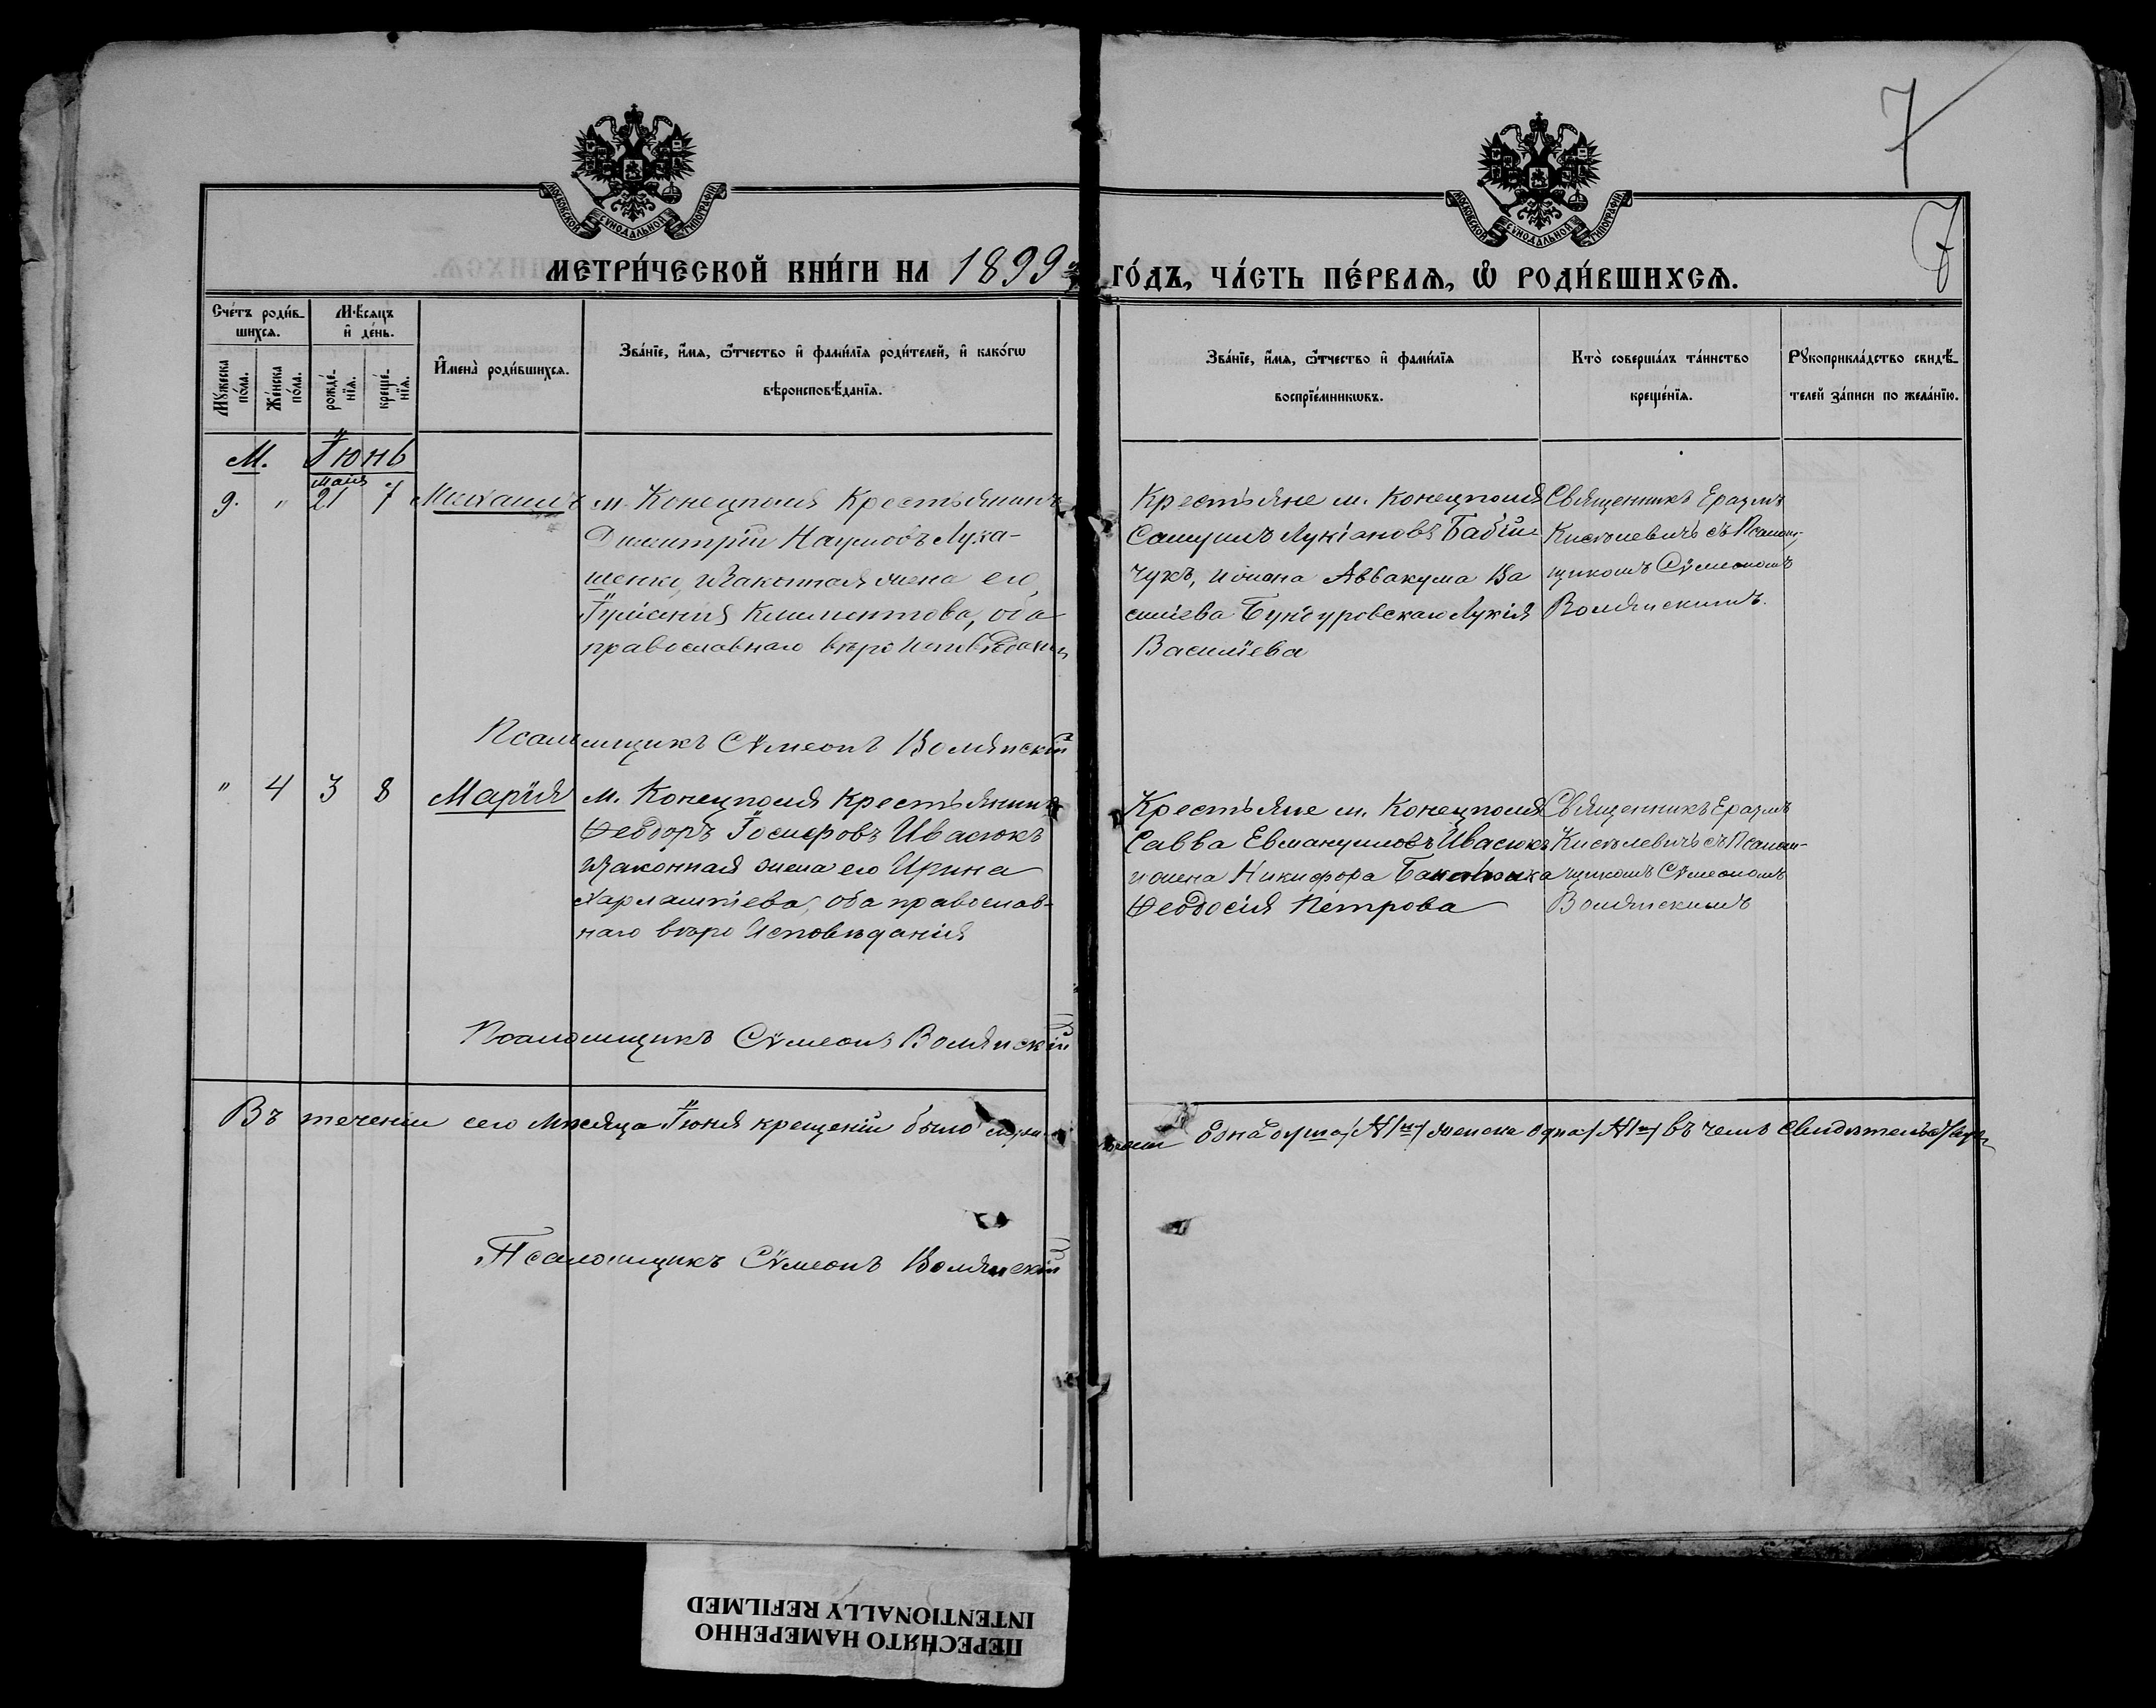 7
МОСКОВСКОЙ СѴНОДАЛЬНОЙ ТИПОГРАФІИ
МОСКОВСКОЙ СѴНОДАЛЬНОЙ ТИПОГРАФІИ
7
МЕТРИ́ЧЕСКОЙ КНИ́ГИ НА 1899 й ГО́ДЪ, ЧА́СТЬ ПЕ́РВАѦ, Ѡ РОДИ́ВШИХСѦ.
Сче́тъ роди́в-
шихсѧ.
Мꙋ́жеска по́ла.
Же́нска по́ла.
Мѣ́сѧцъ
и҆ де́нь.
рожде́нїѧ.
креще́нїѧ.
И҆мена̀ роди́вшихсѧ.
Зва́нїе, и҆́мѧ, ѻ҆́тчество и҆ фами́лїѧ роди́телей, и҆ како́гѡ
вѣроисповѣ́данїѧ.
Зва́нїе, и҆́мѧ, ѻ҆́тчество и҆ фами́лїѧ
воспрїе́мникѡвъ.
Кто̀ соверша́лъ та́инство
креще́нїѧ.
Рꙋкоприкла́дство свидѣ́-
телей за́писи по жела́нїю.
М. Іюнь
Мая
9. " 21 7 Михаилъ
м. Конецполя Крестьянинъ
Димитрій Наумовъ Лука-
шенко, и законная жена его,
Іуліанія Климентова, оба
православнаго вѣроисповѣданія
Крестьяне м. Конецполя
Самуилъ Лукіановъ Бабій-
чукъ, и жена Аввакума Ва
силіева Бунчуровскаго Лукія
Василіева
Священникъ Еразмъ
съ Псалом-
щикомъ Сѵмеономъ
Волянскимъ.
Псаломщикъ Сѵмеонъ Волянскій
" 4 3 8 Марія
м. Конецполя Крестьянинъ
Ѳеодоръ Іосифовъ Ивасюкъ
и законная жена его Ирина
Харлампіева, оба православ-
наго вѣроисповѣданія
Крестьяне м. Конецполя
Савва Евмануиловъ Ивасюкъ
и жена Никифора
Ѳеодосія Петрова
Священникъ Еразмъ
съ Псалом-
щикомъ Сѵмеономъ
Волянскимъ
Псаломщикъ Сѵмеонъ Волянскій
Въ теченіи сего мѣсяца Іюня крещеній было женска одна въ чемъ
Псаломщикъ Сѵмеонъ Волянскій
ПЕРЕСНЯТО НАМЕРЕННО
INTENTIONALLY REFILMED